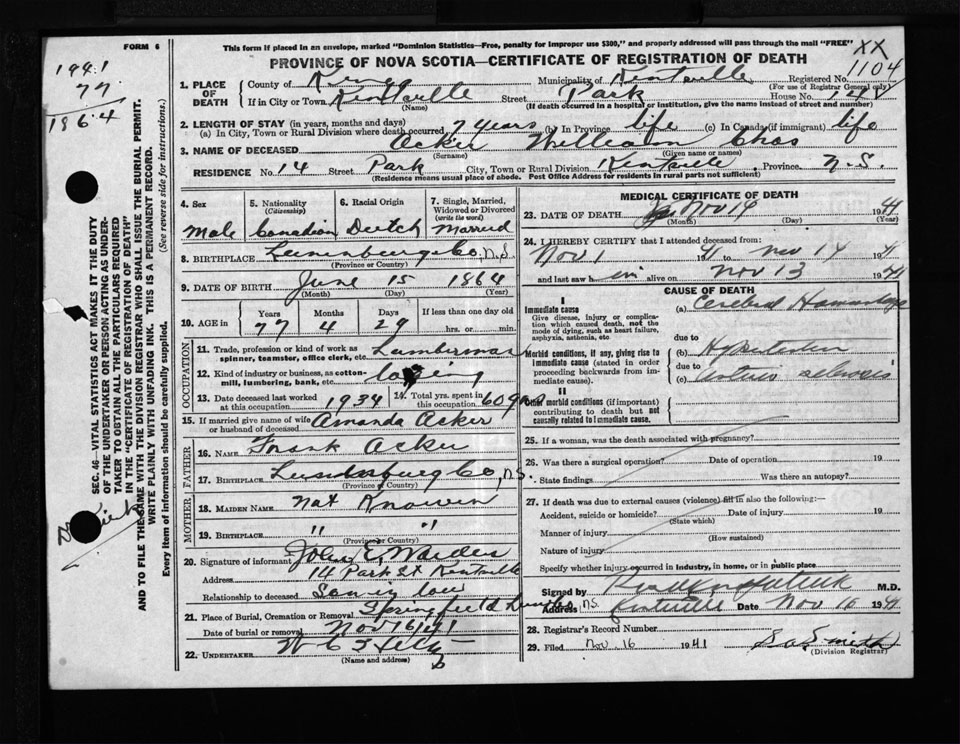 FORM 6
This form if placed in an envelope, marked "Dominion Statistics—Free, penalty for improper use $300," and properly addressed will pass through the mail "FREE"
XX
PROVINCE OF NOVA SCOTIA—CERTIFICATE OF REGISTRATION OF DEATH
1941
77
1864
1. PLACE OF DEATH
County of Kings Municipality of Kentville Registered No. 1104
(For use of Registrar General only)
If in City or Town Kentville Street Park House No. 14
(Name) (If death occurred in a hospital or institution, give the name instead of street and number)
2. LENGTH OF STAY (in years, months and days)
(a) In City, Town or Rural Division where death occurred 7 years (b) In Province life (c) In Canada (if immigrant) life
3. NAME OF DECEASED Acker William Chas
(Surname) (Given name or names)
RESIDENCE No. 14 Street Park City, Town or Rural Division Kentville Province N.S.
(Residence means usual place of abode. Post Office Address for residents in rural parts not sufficient)
4. Sex
Male
5. Nationality (Citizenship)
Canadian
6. Racial Origin
Dutch
7. Single, Married, Widowed or Divorced (write the word)
Married
8. BIRTHPLACE Lunenburg Co, N.S
(Province or Country)
9. DATE OF BIRTH June 15 1864
(Month) (Day) (Year)
10. AGE in Years Months Days If less than one day old
77 4 29 hrs. or min.
OCCUPATION
11. Trade, profession or kind of work as spinner, teamster, office clerk, etc. Lumberman
12. Kind of industry or business, as cotton-mill, lumbering, bank, etc.
13. Date deceased last worked at this occupation 1934
14. Total yrs. spent in this occupation 60 yrs
15. If married give name of wife or husband of deceased Amanda Acker
FATHER
16. NAME Frank Acker
17. BIRTHPLACE Lunenburg Co, N.S.
(Province or Country)
MOTHER
18. MAIDEN NAME Not Known
19. BIRTHPLACE " "
(Province or Country)
20. Signature of informant John E.
Address 14 Park St Kentville
Relationship to deceased Son in law
21. Place of Burial, Cremation or Removal Springfield N.S.
Date of burial or removal Nov 16/41
22. UNDERTAKER
(Name and address)
MEDICAL CERTIFICATE OF DEATH
23. DATE OF DEATH Nov 1941
(Month) (Day) (Year)
24. I HEREBY CERTIFY that I attended deceased from:
Nov 1 1941 to Nov 14 1941
and last saw him alive on Nov 13 1941
CAUSE OF DEATH
I
Immediate cause
Give disease, injury or complication which caused death, not the mode of dying, such as heart failure, asphyxia, asthenia, etc
(a) Cerebral
due to
Morbid conditions, if any, giving rise to immediate cause (stated in order proceeding backwards from immediate cause).
(b) Hypertension
due to
(c) sclerosis
II
Other morbid conditions (if important) contributing to death but not causally related to immediate cause.
25. If a woman, was the death associated with pregnancy?
26. Was there a surgical operation? Date of operation 19
State findings Was there an autopsy?
27. If death was due to external causes (violence) fill in also the following:—
Accident, suicide or homicide? Date of injury 19
(State which)
Manner of injury
(How sustained)
Nature of injury
Specify whether injury occurred in Industry, in home, or in public place
Signed by M.D.
Address Kentville Date Nov 16 1941
28. Registrar's Record Number
29. Filed Nov. 16 1941 Smith
(Division Registrar)
SEC. 46—VITAL STATISTICS ACT MAKES IT THE DUTY
OF THE UNDERTAKER OR PERSON ACTING AS UNDERTAKER TO OBTAIN ALL THE PARTICULARS REQUIRED
IN THE "CERTIFICATE OF REGISTRATION OF DEATH"
AND TO FILE THE SAME WITH THE DIVISION REGISTRAR WHO SHALL ISSUE THE BURIAL PERMIT.
WRITE PLAINLY WITH UNFADING INK. THIS IS A PERMANENT RECORD.
Every item of information should be carefully supplied. (See reverse side for instructions.)